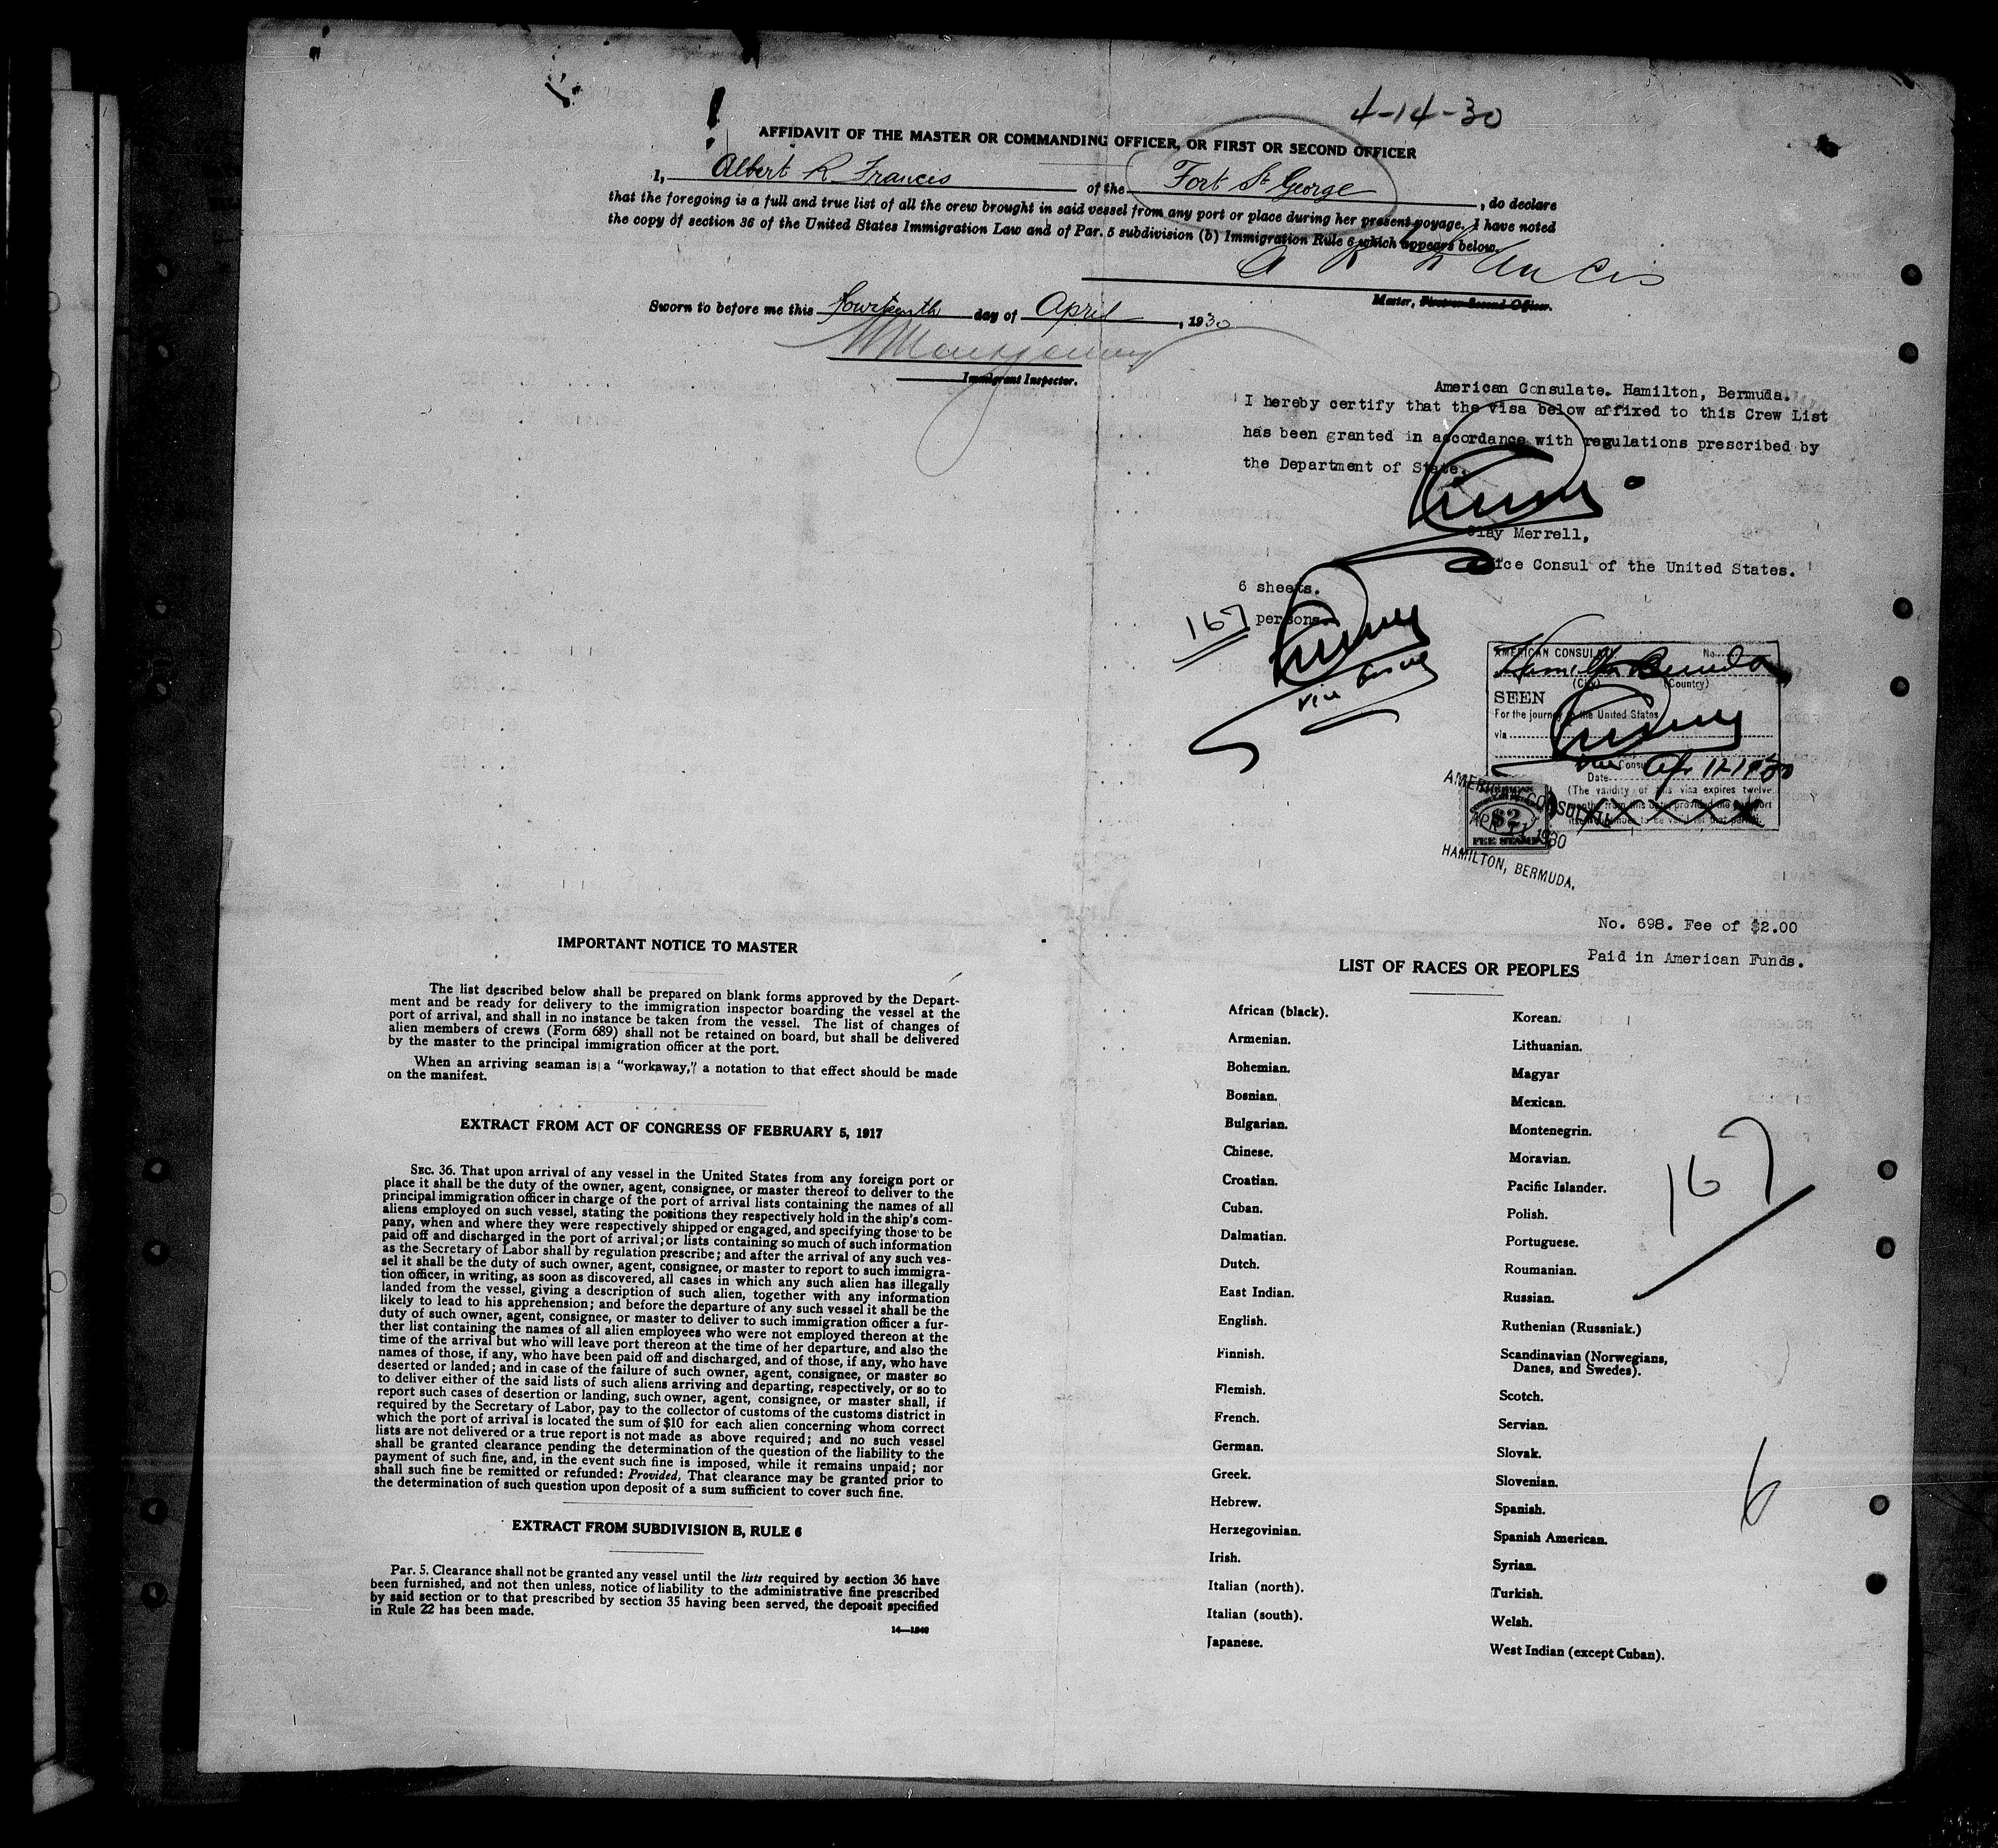 4-14-30
AFFIDAVIT OF THE MASTER OR COMMANDING OFFICER, OR FIRST OR SECOND OFFICER
I, Albert R Francis of the Fort St George, do declare
that the foregoing is a full and true list of all the crew brought in said vessel from any port or place during her present voyage. I have noted
the copy of section 36 of the United States Immigration Law and of Par. 5 subdivision (b) Immigration Rule 6 which appears below.
A R Francis
Master, First or Second Officer.
Sworn to before me this fourteenth day of April, 1930
Montgomery
Immigrant Inspector.
American Consulate. Hamilton, Bermuda.
I hereby certify that the visa below affixed to this Crew List
has been granted in accordance with regulations prescribed by
the Department of State.
Clay Merrell,
Vice Consul of the United States.
6 sheets.
167 persons
vice consul
AMERICAN CONSULATE No.
Hamilton Bermuda
(City) (Country)
SEEN
For the journey to the United States
via
Vice Consul
Date Apr 12 1930
(The validity of this visa expires twelve
months from this date, provided the passport
continues to be valid for that period.
AMERICAN CONSULATE
APR 1930
HAMILTON, BERMUDA.
$2
FEE STAMP
No. 698. Fee of $2.00
Paid in American Funds.
IMPORTANT NOTICE TO MASTER
The list described below shall be prepared on blank forms approved by the Depart-
ment and be ready for delivery to the immigration inspector boarding the vessel at the
port of arrival, and shall in no instance be taken from the vessel. The list of changes of
alien members of crews (Form 689) shall not be retained on board, but shall be delivered
by the master to the principal immigration officer at the port.
When an arriving seaman is a "workaway," a notation to that effect should be made
on the manifest.
EXTRACT FROM ACT OF CONGRESS OF FEBRUARY 5, 1917
SEC. 36. That upon arrival of any vessel in the United States from any foreign port or
place it shall be the duty of the owner, agent, consignee, or master thereof to deliver to the
principal immigration officer in charge of the port of arrival lists containing the names of all
aliens employed on such vessel, stating the positions they respectively hold in the ship's com-
pany, when and where they were respectively shipped or engaged, and specifying those to be
paid off and discharged in the port of arrival; or lists containing so much of such information
as the Secretary of Labor shall by regulation prescribe; and after the arrival of any such ves-
sel it shall be the duty of such owner, agent, consignee, or master to report to such immigra-
tion officer, in writing, as soon as discovered, all cases in which any such alien has illegally
landed from the vessel, giving a description of such alien, together with any information
likely to lead to his apprehension; and before the departure of any such vessel it shall be the
duty of such owner, agent, consignee, or master to deliver to such immigration officer a fur-
ther list containing the names of all alien employees who were not employed thereon at the
time of the arrival but who will leave port thereon at the time of her departure, and also the
names of those, if any, who have been paid off and discharged, and of those, if any, who have
deserted or landed; and in case of the failure of such owner, agent, consignee, or master so
to deliver either of the said lists of such aliens arriving and departing, respectively, or so to
report such cases of desertion or landing, such owner, agent, consignee, or master shall, if
required by the Secretary of Labor, pay to the collector of customs of the customs district in
which the port of arrival is located the sum of $10 for each alien concerning whom correct
lists are not delivered or a true report is not made as above required; and no such vessel
shall be granted clearance pending the determination of the question of the liability to the
payment of such fine, and, in the event such fine is imposed, while it remains unpaid; nor
shall such fine be remitted or refunded: Provided, That clearance may be granted prior to
the determination of such question upon deposit of a sum sufficient to cover such fine.
EXTRACT FROM SUBDIVISION B, RULE 6
Par. 5. Clearance shall not be granted any vessel until the lists required by section 36 have
been furnished, and not then unless, notice of liability to the administrative fine prescribed
by said section or to that prescribed by section 35 having been served, the deposit specified
in Rule 22 has been made.
14—1240
LIST OF RACES OR PEOPLES
African (black).
Armenian.
Bohemian.
Bosnian.
Bulgarian.
Chinese.
Croatian.
Cuban.
Dalmatian.
Dutch.
East Indian.
English.
Finnish.
Flemish.
French.
German.
Greek.
Hebrew.
Herzegovinian.
Irish.
Italian (north).
Italian (south).
Japanese.
Korean.
Lithuanian.
Magyar
Mexican.
Montenegrin.
Moravian.
Pacific Islander.
Polish.
Portuguese.
Roumanian.
Russian.
Ruthenian (Russniak.)
Scandinavian (Norwegians,
Danes, and Swedes).
Scotch.
Servian.
Slovak.
Slovenian.
Spanish.
Spanish American.
Syrian.
Turkish.
Welsh.
West Indian (except Cuban).
167
6